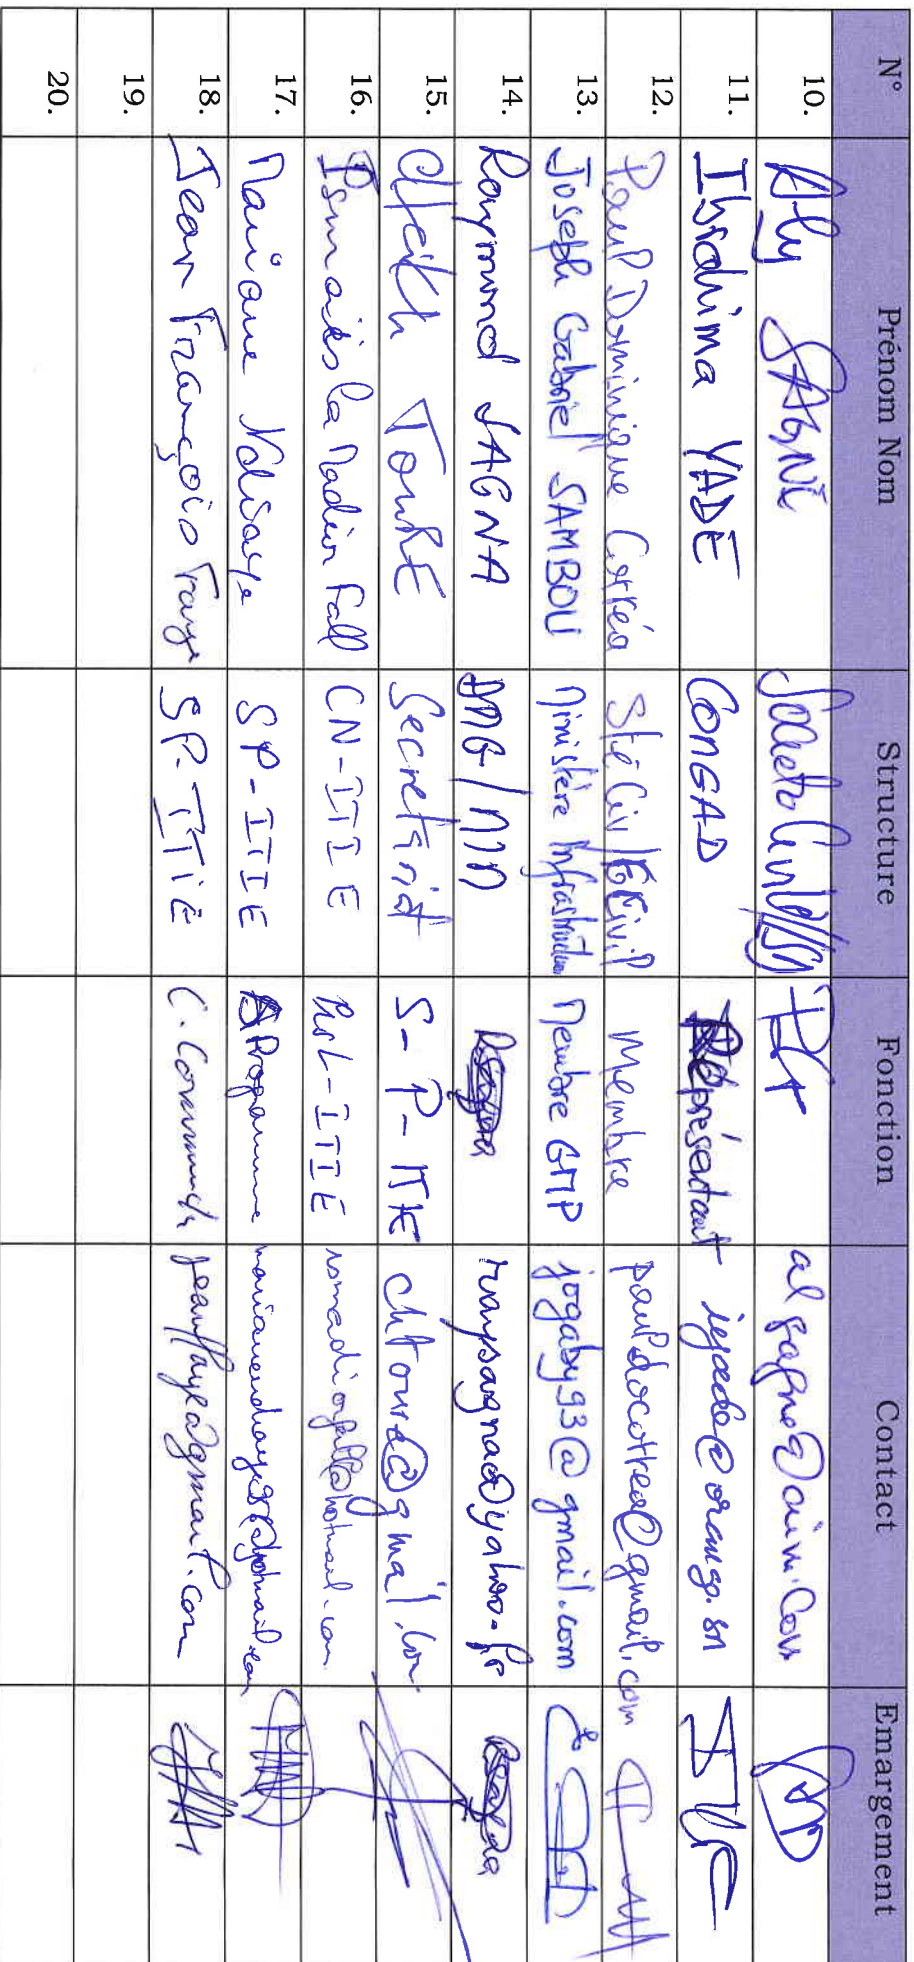 N° Prénom Nom Structure Fonction Contact Emargement
10. Aly SAGNA
11. Ibrahima YADE CONGAD Représentant iyade@orange.sn
12. Paul Dominique Corréa Sté Civ/ Membre pauldocorrea@gmail.com
13. Joseph Gabriel SAMBOU Ministère Infrastructures Membre GMP jogaby93@gmail.com
14. Raymond SAGNA DMG/MIM raysagna@yahoo.fr
15. Cheikh TOURE Secretariat S-P-ITIE chtoure@gmail.com
16. Ismaïla Madior Fall CN-ITIE Pist-ITIE ismadiorfall@hotmail.com
17. Mariane Ndiaye SP-ITIE Programme
18. Jean François Faye SP-ITIE C. Communic jeanffaye@gmail.com
19.
20.